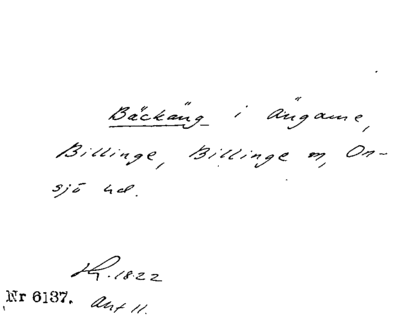 Bäckäng i Ängame,
Billinge, Billinge sn, On-
sjö hd.
1822
Nr 6137. Akt 11.